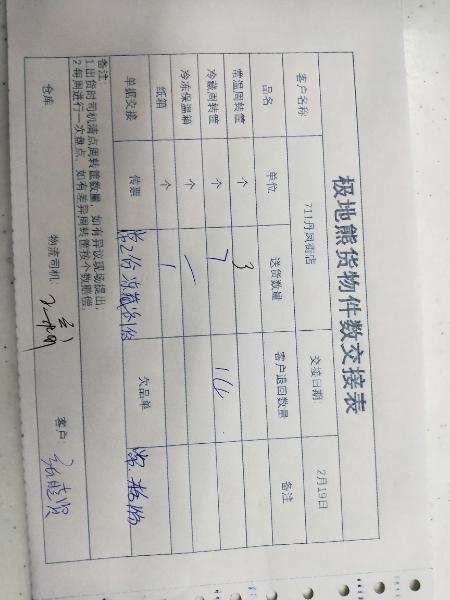 极地熊货物件数交接表
客户名称 711丹凤街店 交接日期 2月19日
品名 单位 送货数量 客户退回数量 备注
常温周转筐 个 3
冷藏周转筐 个 7 16
冷冻保温箱 个 一
纸箱 个 1
单据交接 传票 常2份冷藏各1份 欠品单 常.冷
备注:
1.出货时司机请点周转筐数量,如有异议现场提出;
2.每周进行一次盘点,如有差异周转筐按个数赔偿。
仓库: 物流司机: 客户: